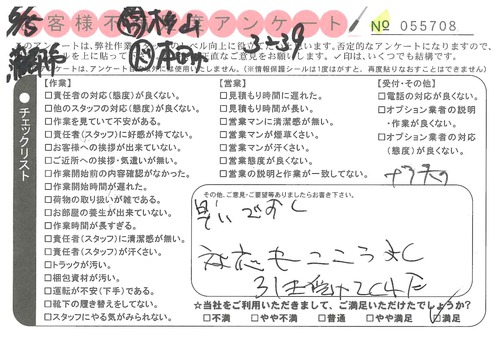 お客様不満足度アンケート
№ 055708
5/5
3-39
このアンケートは、弊社作業
否定的なアンケートになりますので、
✓印は、いくつでも結構です。
(※情報保護シールは1度はがすと、再度貼りなおすことはできません)
チェックリスト
【作業】
□責任者の対応(態度)が良くない。
□他のスタッフの対応(態度)が良くない。
□作業を見ていて不安がある。
□責任者(スタッフ)に好感が持てない。
□お客様への挨拶が出来ていない。
□ご近所への挨拶・気遣いが無い。
□作業開始前の内容確認がなかった。
□作業開始時間が遅れた。
□荷物の取り扱いが雑である。
□お部屋の養生が出来ていない。
□作業時間が長すぎる。
□責任者(スタッフ)に清潔感が無い。
□責任者(スタッフ)が汗くさい。
□トラックが汚い。
□梱包資材が汚い。
□運転が不安(下手)である。
□靴下の履き替えをしてない。
□スタッフにやる気がみられない。
【営業】
□見積もり時間に遅れた。
□見積もり時間が長い。
□営業マンに清潔感が無い。
□営業マンが煙草くさい。
□営業マンが汗くさい。
□営業態度が良くない。
□営業の説明と作業が一致してない。
【受付・その他】
□電話の対応が良くない。
□オプション業者の説明・作業が良くない。
□オプション業者の対応(態度)が良くない。
その他、ご意見・ご要望等ありましたらお書き下さい。
対応もこころよく
☆当社をご利用いただきまして、ご満足いただけたでしょうか?
□不満 □やや不満 □普通 □やや満足 □満足